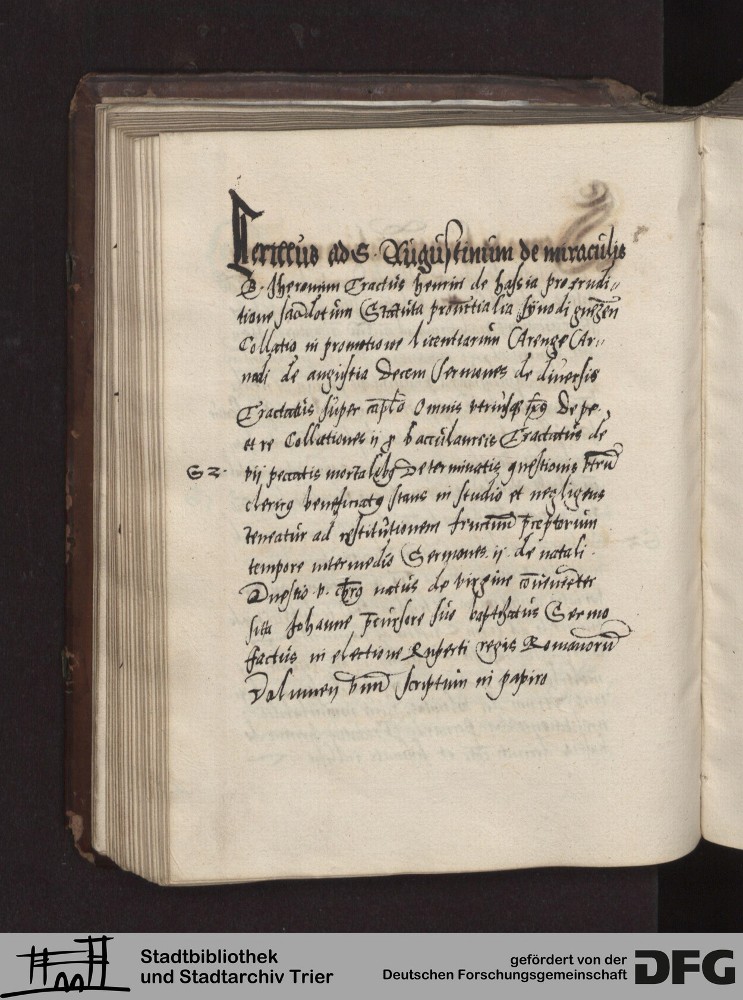 ad S. Augustinum de miraculis
B. Iheronimi Tractus henrici de hassia pro erudi-
tione sacdotum Statuta provincialia synodi
Collatio in promotione licentiarum Arenge Ar-
noldi de augustia Decem Sermones de diversis
Tractatus super caplo Omnis utriusqz sexq De pe
et re Collationes ij p baccalaureis Tractatus de
S 2. vij peccatis mortalibq Determinatio questionis utrū
clericq beneficiatq stans in studio et negligens
teneatur ad restitutionem fructuum pceptorum
tempore intermedio Sermones ij de natali
Questio v. chrq natus de virgine
Johanne pcursore suo baptizatus Sermo
factus in electione Ruperti regis Romanorū
Volumen vnū scriptum in papiro
Stadtbibliothek
und Stadtarchiv Trier
gefördert von der
Deutschen Forschungsgemeinschaft
DFG